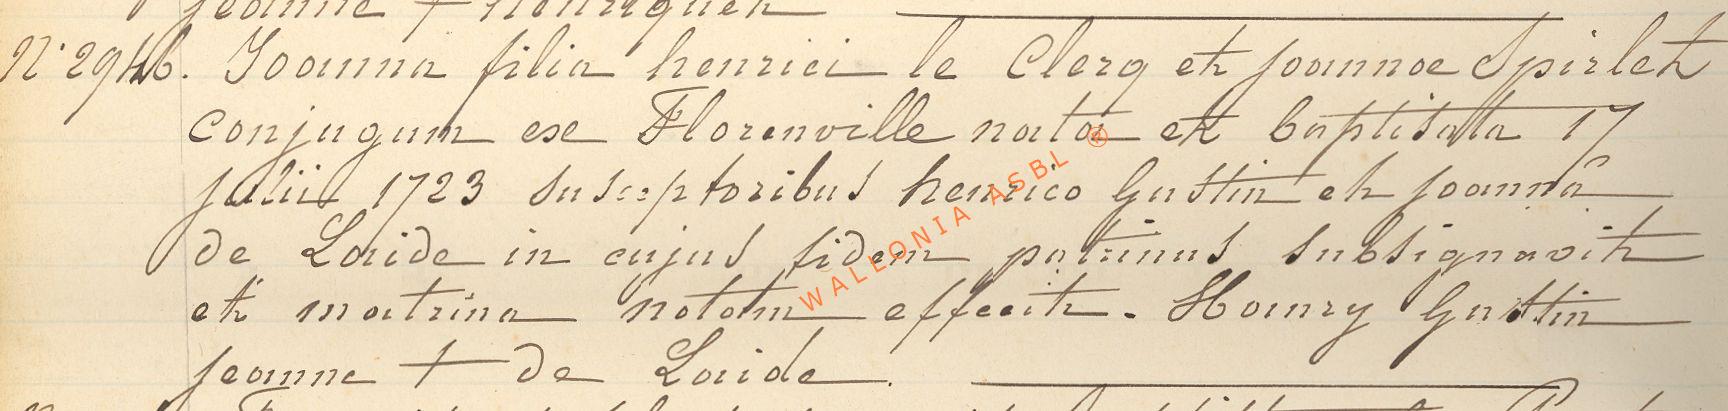 jeanne + henriquet
N° 2946. Joanna filia henrici le Clerq et joannae Spirlet
conjugum exe Florenville nata et baptisata 17
julii 1723 susceptoribus henrico Gustin et joannâ
de Laide in cujus fidem patrinus subsignavit
et matrina notam effecit. Hanry Gustin
jeanne + de Laide.
WALLONIA ASBL ®